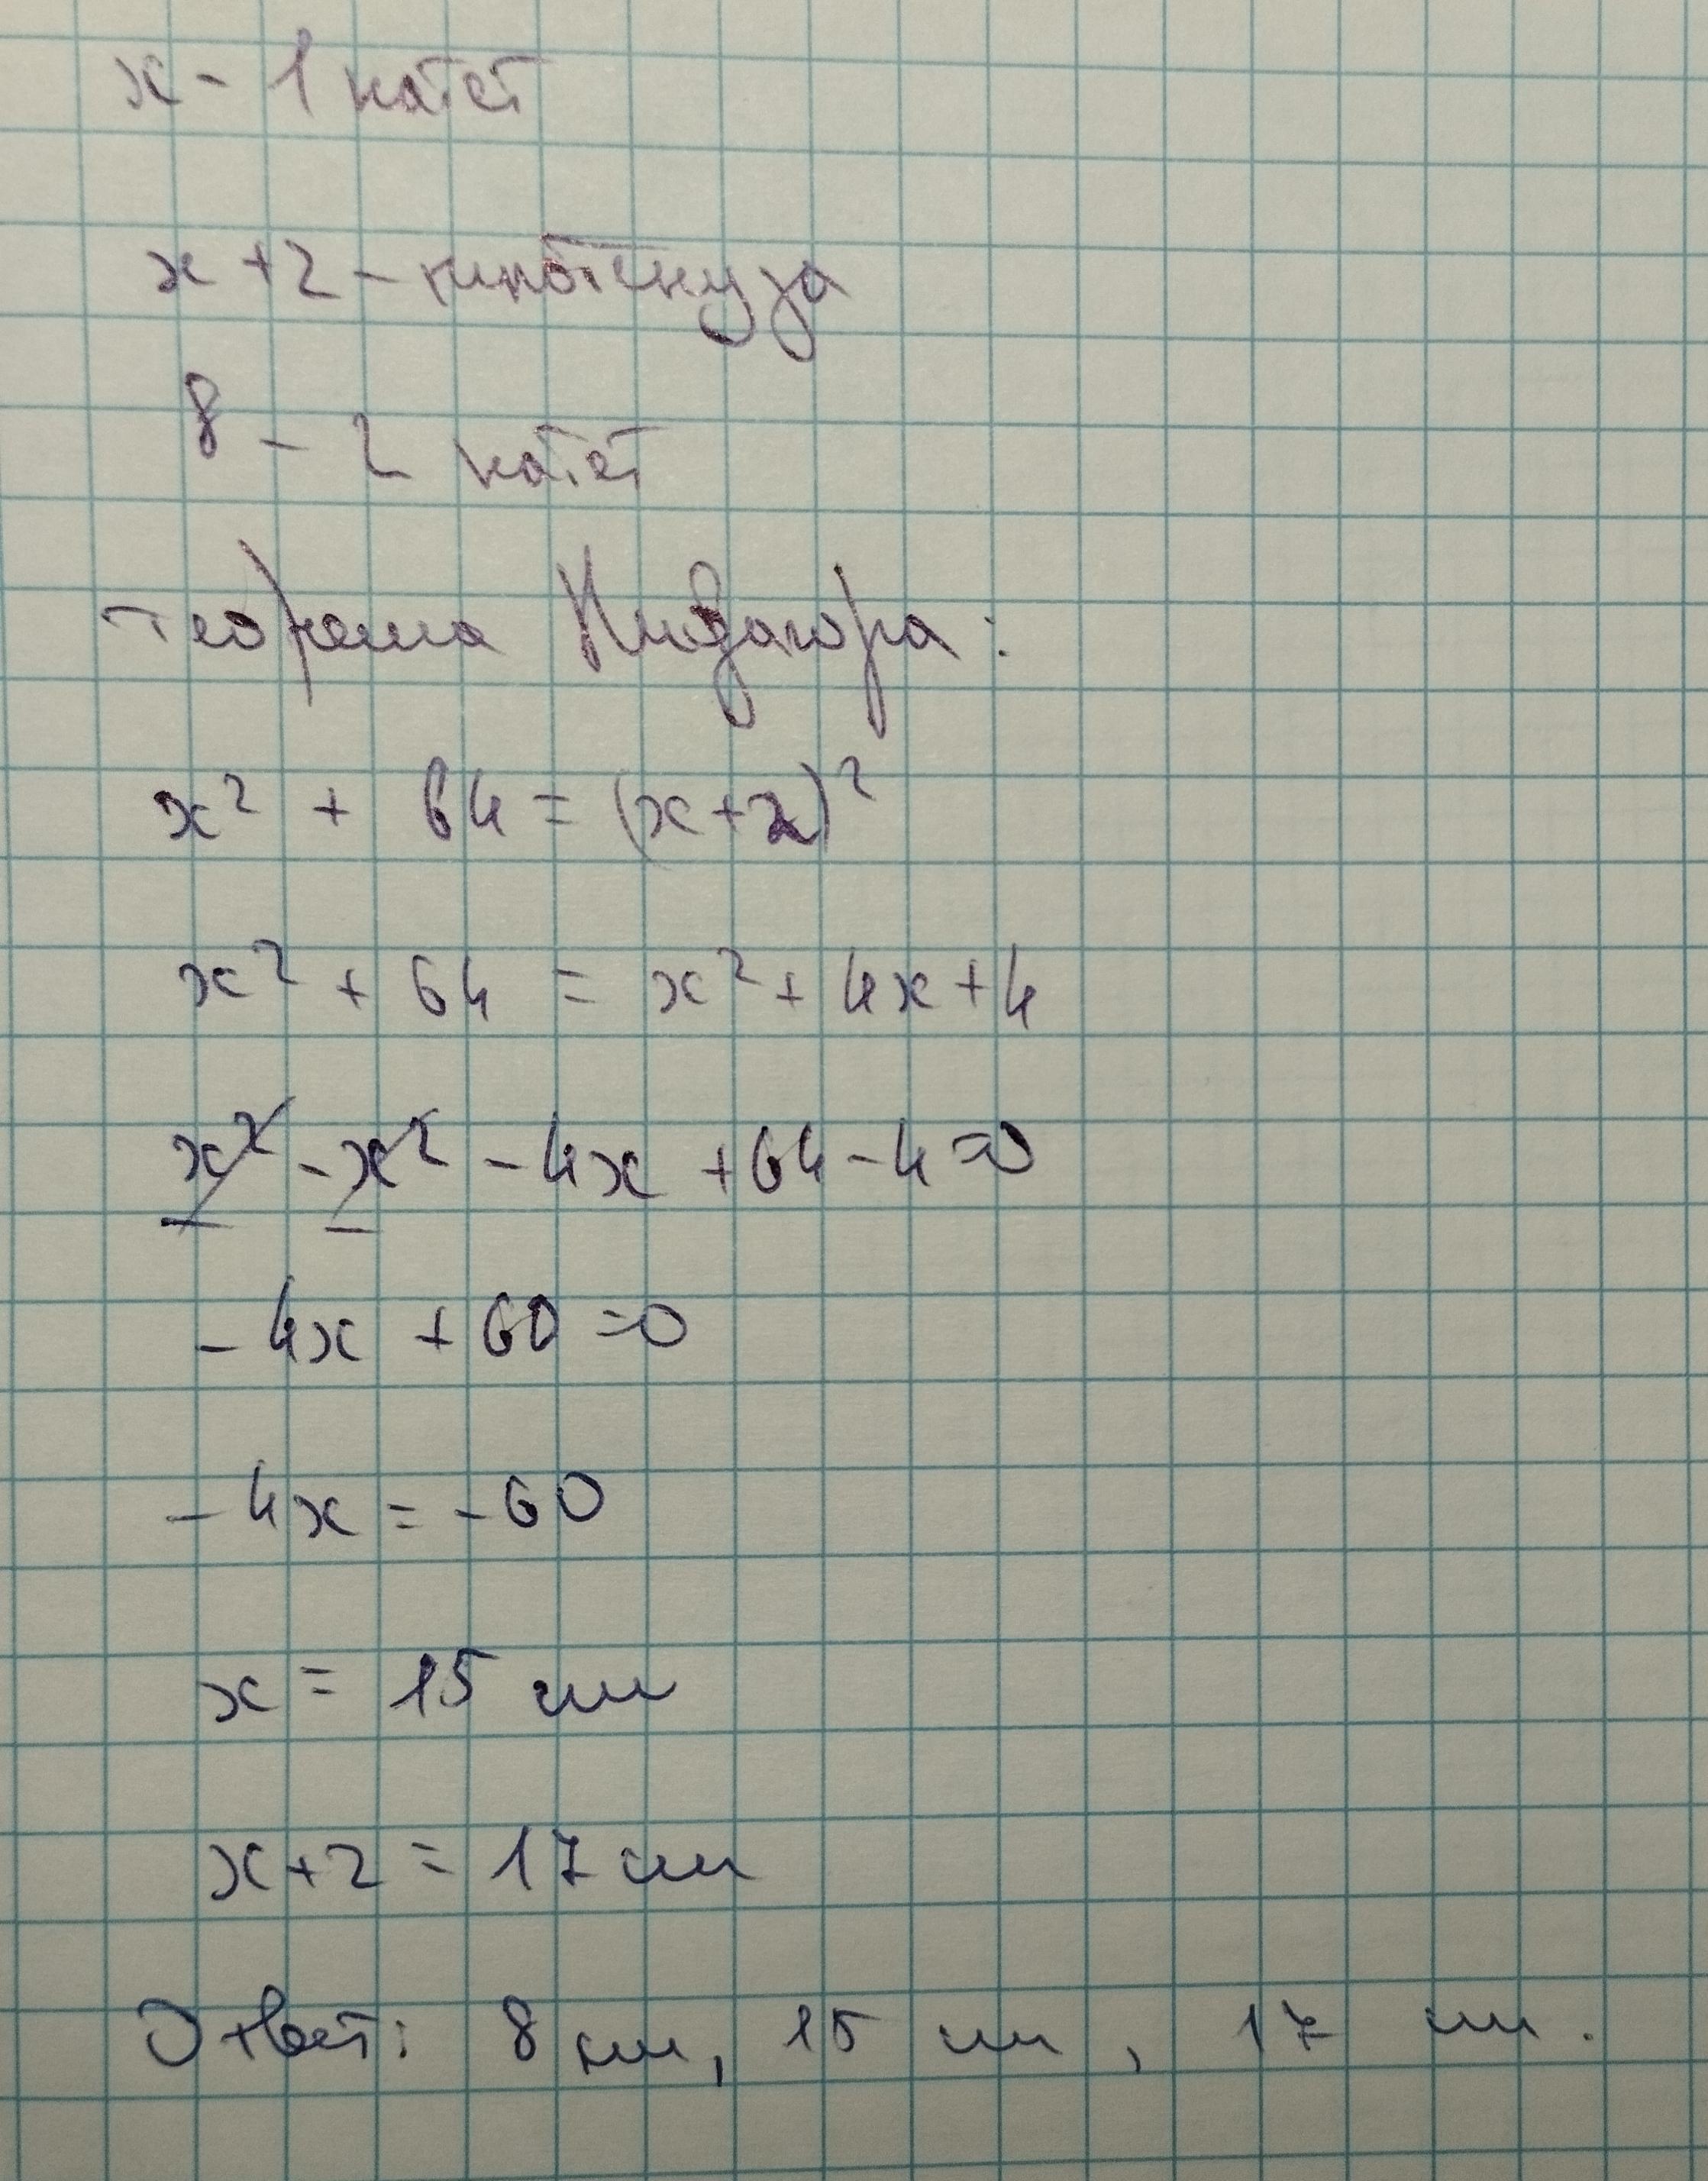 x - 1 катет
x + 2 - гипотенуза
8 - 2 катет
теорема Пифагора:
x² + 64 = (x+2)²
x² + 64 = x² + 4x + 4
x² - x² - 4x + 64 - 4 = 0
- 4x + 60 = 0
- 4x = - 60
x = 15 см
x + 2 = 17 см
Ответ: 8 см, 15 см, 17 см.